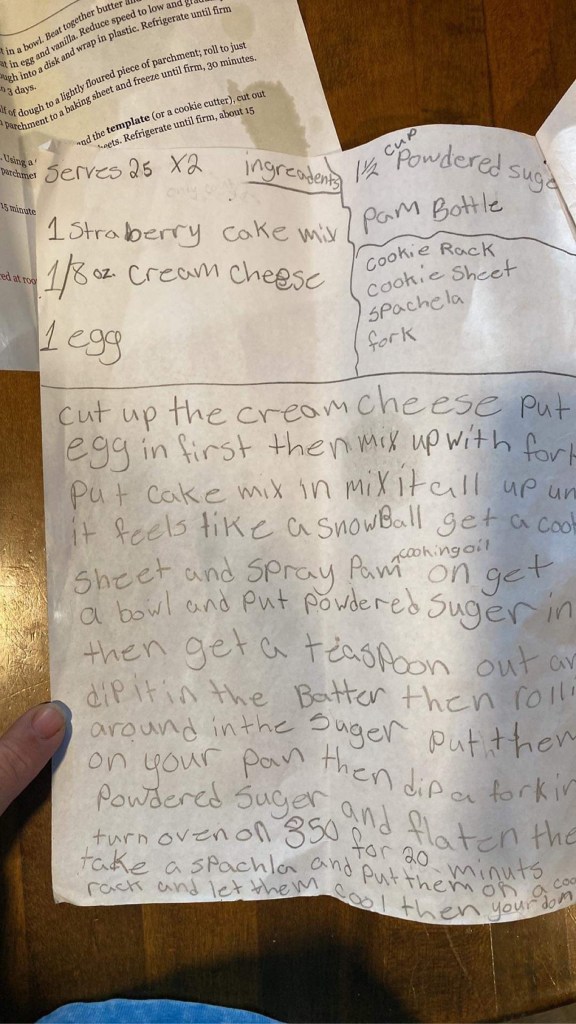 in a bowl. Beat together butter
in egg and vanilla. Reduce speed to low and
ugh into a disk and wrap in plastic. Refrigerate until firm
3 days.
lf of dough to a lightly floured piece of parchment; roll to just
parchment to a baking sheet and freeze until firm, 30 minutes.
and the template (or a cookie cutter), cut out
ets. Refrigerate until firm, about 15
Using a
parchmen
15 minute
ed at roo
Serves 25 X2 ingreadents
1 Straberry cake mix
1/8 oz. cream cheese
1 egg
1 1/2 cup Powdered suge
Pam Bottle
Cookie Rack
cookie Sheet
spachela
fork
cut up the cream cheese put
egg in first then mix up with fork
Put cake mix in mix it all up un
it feels like a snowBall get a cook
sheet and spray Pam cooking oil on get
a bowl and put powdered suger in
then get a teaspoon out an
dip it in the Batter then roll i
around in the suger put them
on your pan then dip a fork in
Powdered Suger and flaten the
turn oven on 350 f for 20 minuts
take a spachla and put them on a coo
rack and let them cool then your don